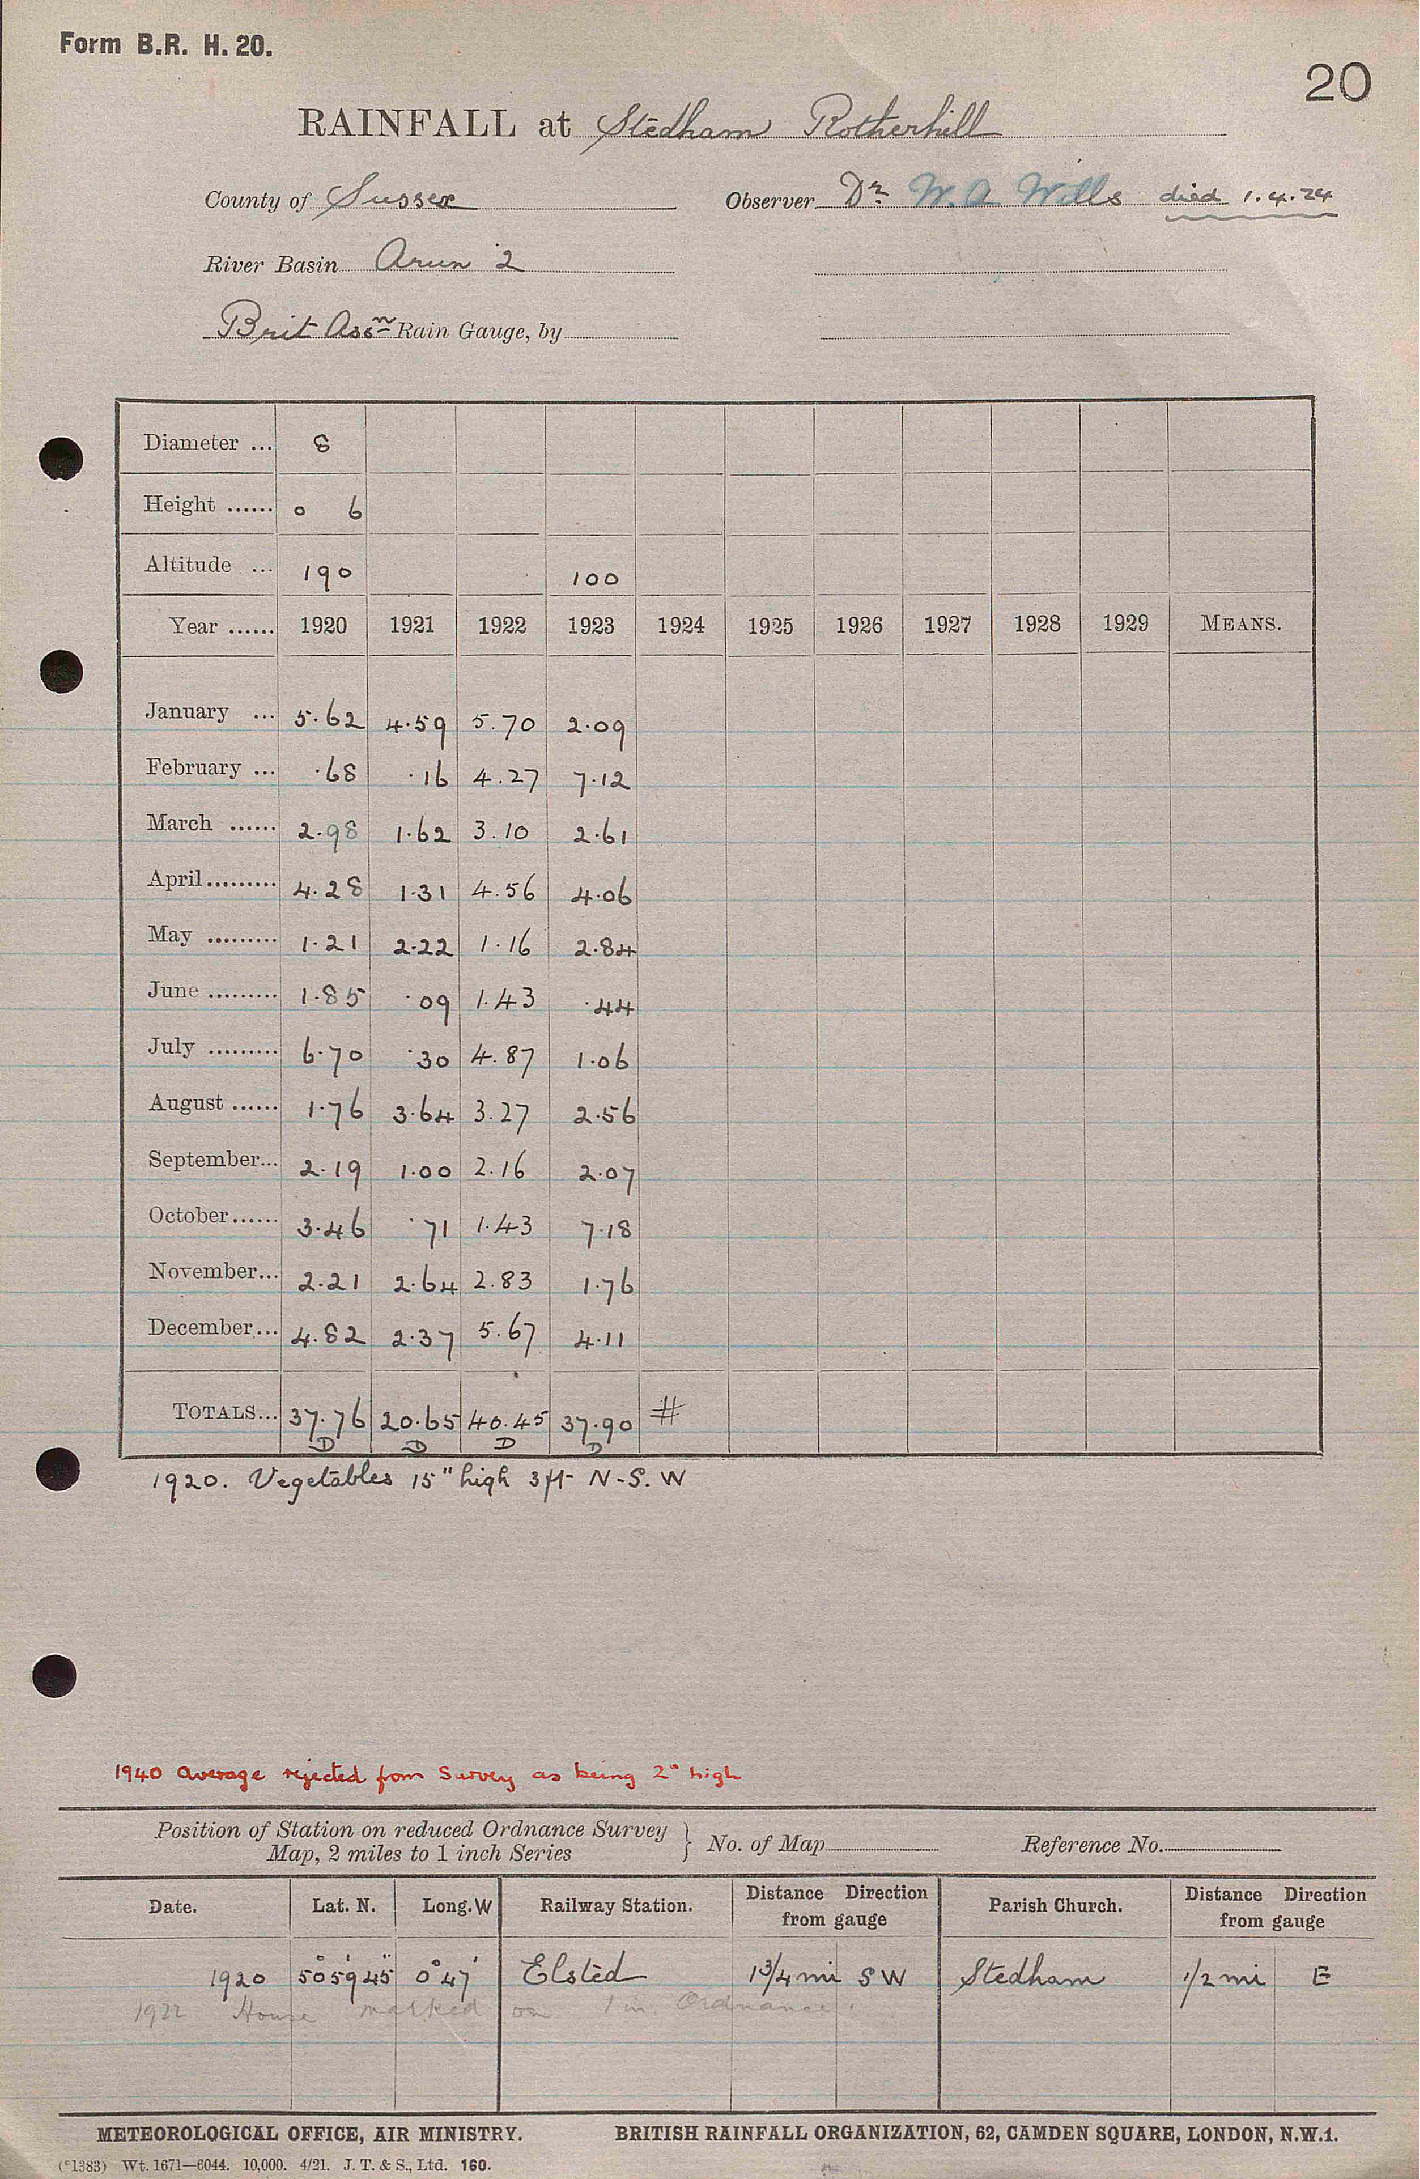 Form B.R. H. 20.
20
RAINFALL at Stedham Rotherhill
County of Sussex Observer Dr W. A. Wills died 1.4.24
River Basin Arun 2
Brit Assn Rain Gauge, by
Diameter ... 8
Height ...... 0 6
Altitude ... 190 100
Year ...... 1920 1921 1922 1923 1924 1925 1926 1927 1928 1929 MEANS.
January ... 5.62 4.59 5.70 2.09
February ... .68 .16 4.27 7.12
March ...... 2.98 1.62 3.10 2.61
April ......... 4.28 1.31 4.56 4.06
May ......... 1.21 2.22 1.16 2.84
June ......... 1.85 .09 1.43 .44
July ......... 6.70 .30 4.87 1.06
August ...... 1.76 3.64 3.27 2.56
September... 2.19 1.00 2.16 2.07
October ...... 3.46 .71 1.43 7.18
November... 2.21 2.64 2.83 1.76
December... 4.82 2.37 5.67 4.11
TOTALS... 37.76 20.65 40.45 37.90 #
D D D D
1920. Vegetables 15" high 3 ft N-S. W
1940 Average rejected from Survey as being 2" high
Position of Station on reduced Ordnance Survey Map, 2 miles to 1 inch Series } No. of Map Reference No.
Date. Lat. N. Long. W Railway Station. Distance Direction from gauge Parish Church. Distance Direction from gauge
1920 50° 59' 45" 0° 47' Elsted 1 3/4 mi SW Stedham 1/2 mi E
1922 House marked on 1 in. Ordnance.
METEOROLOGICAL OFFICE, AIR MINISTRY. BRITISH RAINFALL ORGANIZATION, 62, CAMDEN SQUARE, LONDON, N.W.1.
(*1383) Wt. 1671—6044. 10,000. 4/21. J. T. & S., Ltd. 160.